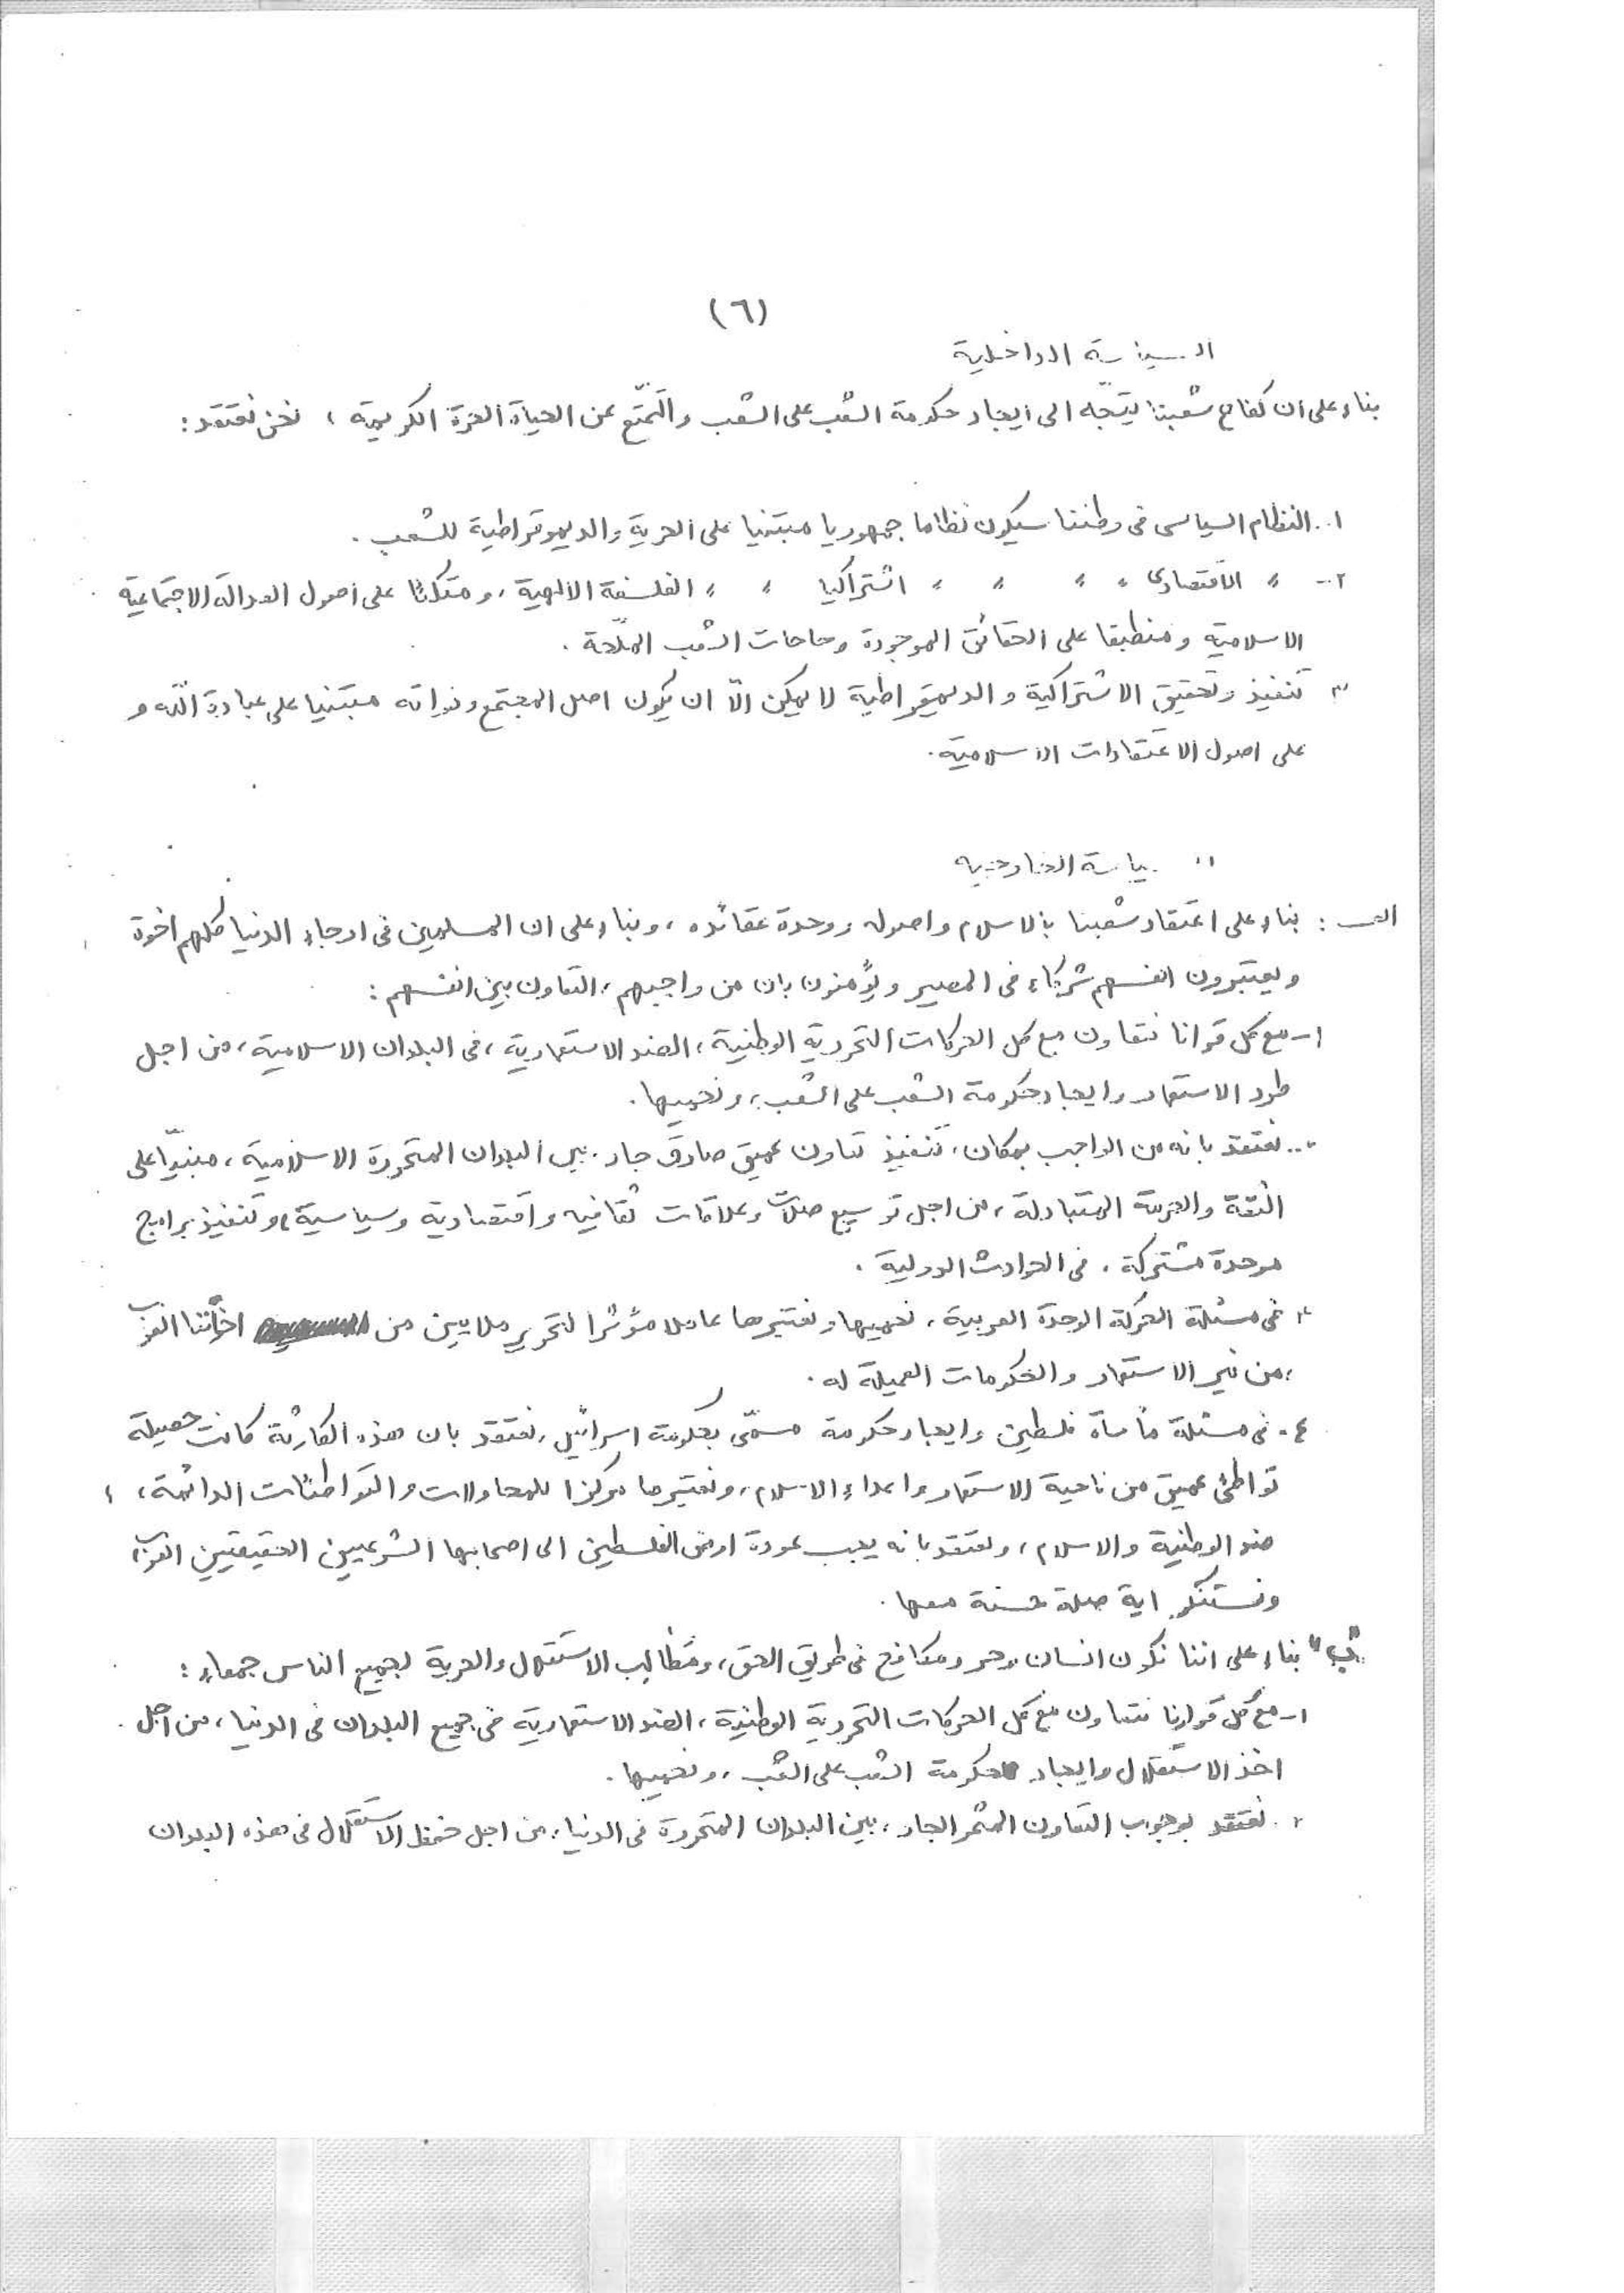 (٦)
السياسة الداخلية
بناء على ان كفاح شعبنا يتجّه الى ايجاد حكومة الشعب على الشعب والتمتّع عن الحياة الحرة الكريمة ، نحن نعتقد :
١ـ النظام السياسى فى وطننا سيكون نظاما جمهوريا مبتنيا على الحرية والديموقراطية للشعب .
٢ـ 〃 الاقتصادى 〃 〃 〃 〃 اشتراكيا 〃 〃 الفلسفة الالهية ، ومتكئا على اصول العدالة الاجتماعية
الاسلامية ومنطبقا على الحقائق الموجودة وحاجات الشعب الملّحة .
٣ تنفيذ وتحقيق الاشتراكية والديمقراطية لا يمكن الاّ ان يكون اصل المجتمع ونواته مبتنيا على عبادة اللّه و
على اصول الاعتقادات الاسلامية .
السياسة الخارجيه
الف : بناء على اعتقاد شعبنا بالاسلام واصوله ووحدة عقائده ، وبناء على ان المسلمين فى ارجاء الدنيا كلهم اخوة
ويعتبرون انفسهم شركاء فى المصير ويؤمنون بان من واجبهم ، التعاون بين انفسهم :
١ـ مع كل قوانا نتعاون مع كل الحركات التحررية الوطنية ، الضد الاستعمارية ، فى البلدان الاسلامية ، من اجل
طرد الاستعمار وايجاد حكومة الشعب على الشعب ، ونحميها .
٢ـ نعتقد بانه من الواجب بمكان ، تنفيذ تعاون عميق صادق جاد ، بين البلدان المتحررة الاسلامية ، مبنيّا على
الثقة والحرمة المتبادلة ، من اجل توسيع صلات وعلاقات ثقافيه واقتصادية وسياسية ، وتنفيذ برامج
موحدة مشتركة ، فى الحوادث الدولية .
٣ فى مسئلة الحركة الوحدة العربية ، نحميها ونعتبرها عاملا مؤثرا لتحرير ملايين من اخأتنا العرب
، من نير الاستعمار والحكومات العميلة له .
٤ . فى مسئلة مأساة فلسطين وايجاد حكومة مسمّى بحكومة اسرائيل ، نعتقد بان هذه الكارثة كانت حصيلة
تواطئ عميق من ناحية الاستعمار واعداء الاسلام ، ونعتبرها مركزا للمحاولات والتواطئات الدائمة ،
ضد الوطنية والاسلام ، ونعتقد بانه يجب عودة ارض الفلسطين الى اصحابها الشرعيين الحقيقيين العرب
ونستنكر اية صلة حسنة معها .
"ب" بناء على اننا نكون انسان وحر ومكافح فى طريق الحق ، ومطالب الاستقلال والحرية لجميع الناس جمعاء :
١ـ مع كل قوانا نتعاون مع كل الحركات التحررية الوطنية ، الضد الاستعمارية فى جميع البلدان فى الدنيا ، من اجل
اخذ الاستقلال وايجاد حكومة الشعب على الشعب ، ونحميها .
٢ . نعتقد بوجوب التعاون المثمر الجاد ، بين البلدان المتحررة فى الدنيا ، من اجل حفظ الاستقلال فى هذه البلدان